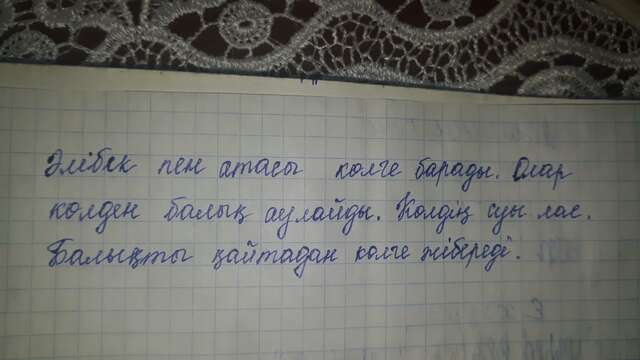 Әлібек пен атасы көлге барады. Олар
көлден балық аулайды. Көлдің суы лас.
Балықты қайтадан көлге жібереді.